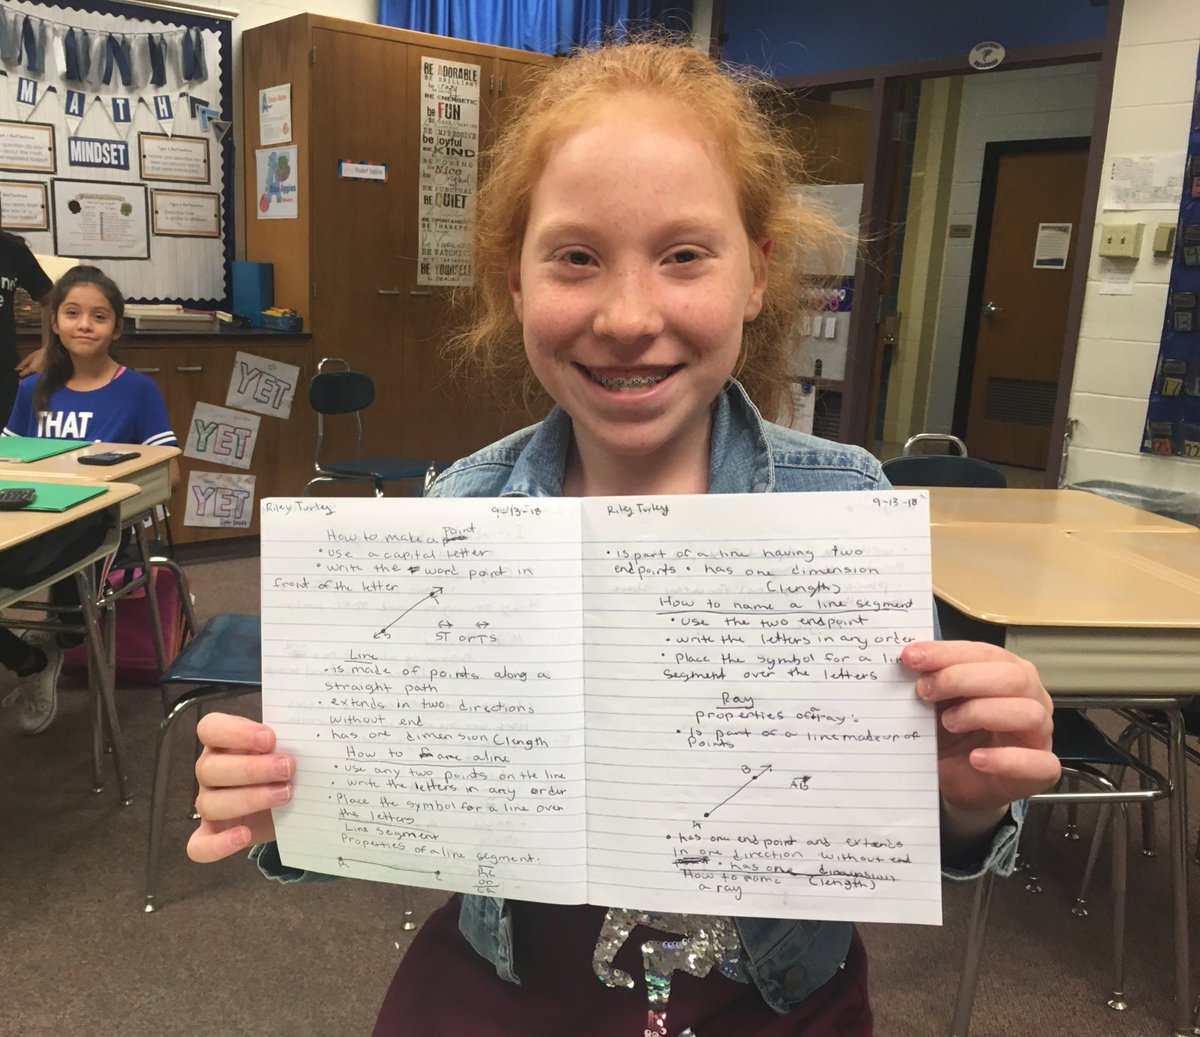 MATH
MINDSET
BE ADORABLE
BE BRILLIANT
be crazy
BE ENERGETIC
be FUN
BE IMPRESSIVE
be joyful
be KIND
BE MOVING
be Nice
be original
BE PUNCTUAL
be QUIET
BE SPONTANEOUS
BE THANKFUL
BE WATCHFUL
BE YOURSELF
Student Supplies
THAT
YET
YET
YET
Riley Turley 9-13-18
How to make a point
• use a capital letter
• write the word point in
front of the letter
S T
ST or TS
Line
• is made of points along a
straight path
• extends in two directions
without end
• has one dimension (length
How to name a line
• use any two points on the line
• write the letters in any order
• Place the symbol for a line over
the letters
Line segment
Properties of a line segment.
R C
RC
or
CR
Riley Turley 9-13-18
• is part of a line having two
endpoints • has one dimension
(length)
How to name a line segment
• use the two endpoint
• write the letters in any order
• Place the symbol for a line
segment over the letters
Ray
properties of a ray:
• Is part of a line made up of
points
B
A
AB
• has one endpoint and extends
in one direction without end
• has one dimension
(length)
How to name
a ray